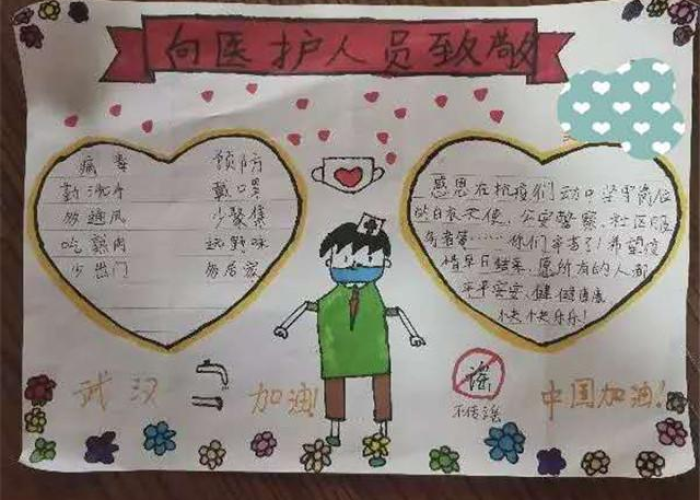 向医护人员致敬
病毒 预防
勤洗手 戴口罩
多通风 少聚集
吃熟肉 远野味
少出门 多居家
感恩在抗疫们动中坚守岗位
的白衣天使、公安警察、社区服
务者等……你们辛苦了!希望疫
情早日结束,愿所有的人都
平平安安、健健康康
快快乐乐!
武汉 加油!
谣
不传谣
中国加油!